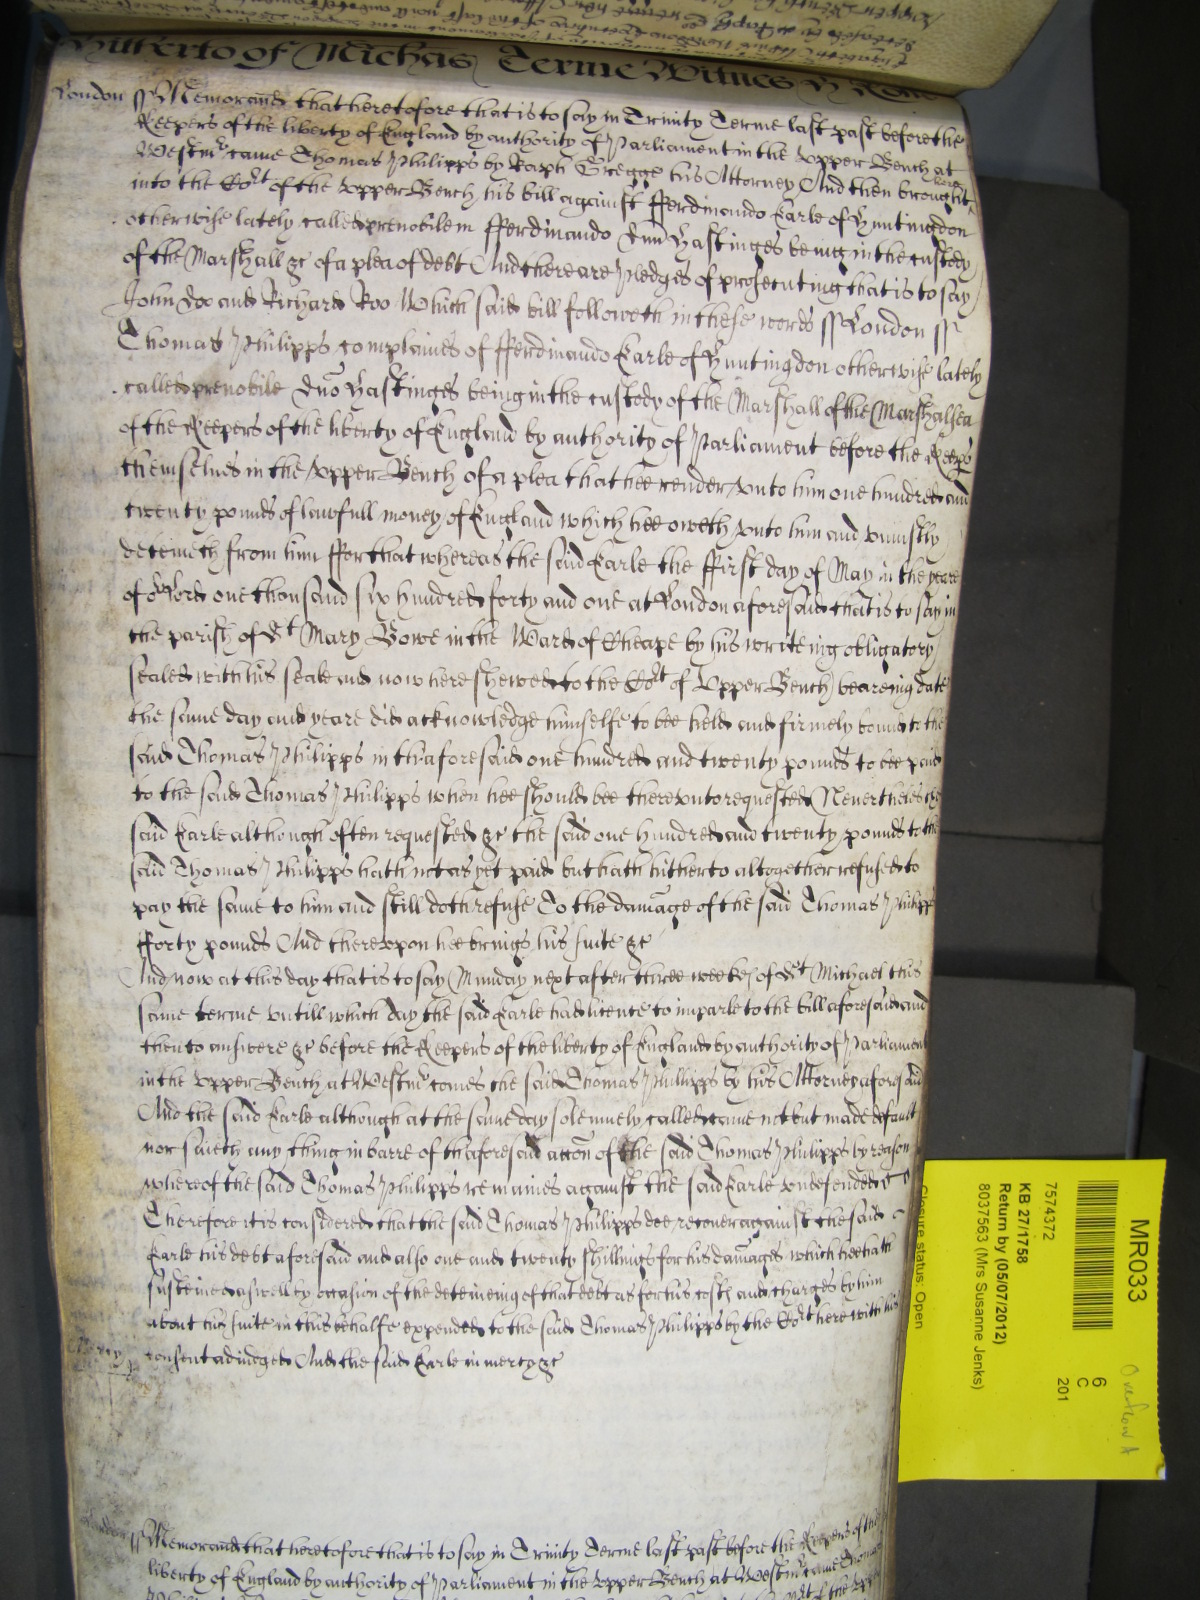 Hitherto of Michās Terme Witnes H Rolle
London ss Memorand that heretofore that is to say in Trinity Terme last past before the
Keepers of the liberty of England by authority of Parliament in the Upper Bench at
Westmr came Thomas Philipps by Raph Gregge his Attorney And then brought here
into the Cort of the Upper Bench his bill against fferdinando Earle of Huntingdon
otherwise lately called prenobilem fferdinando Dnū Hastinges being in the custody
of the Marshall &c of a plea of debt And there are Pledges of prosecuting that is to say
John Doo and Richard Roo Which said bill followeth in these words ss London ss
Thomas Philipps complaines of fferdinando Earle of Huntingdon otherwise lately
called prenobile Dnō Hastinges being in the custody of the Marshall of the Marshalsea
of the Keepers of the liberty of England by authority of Parliament before the Keeps
themselves in the Upper Bench of a plea that hee render unto him one hundred and
twenty pounds of lawfull money of England which hee oweth unto him and uniustly
deteineth from him ffor that whereas the said Earle the ffirst day of May in the yeare
of or Lord one thousand six hundred forty and one at London aforesaid that is to say in
the parish of St Mary Bowe in the Ward of Cheape by his writeing obligatory
sealed with his seale and now here shewed to the Cort of Upper Bench beareing date
the same day and yeare did acknowledge himselfe to bee held and firmely bound to the
said Thomas Philipps in thaforesaid one hundred and twenty pounds to bee paid
to the said Thomas Philipps when hee should bee thereunto requested Nevertheles the
said Earle although often requested &c the said one hundred and twenty pounds to the
said Thomas Philipps hath not as yet paid but hath hitherto altogether refused to
pay the same to him and still doth refuse To the damage of the said Thomas Philipps
fforty pounds And thereupon hee brings his suite &c
And now at this day that is to say Munday next after three weekes of St Michael this
same terme untill which day the said Earle had licence to imparle to the bill aforesaid and
then to answere &c before the Keepers of the liberty of England by authority of Parliament
in the Upper Bench at Westmr comes the said Thomas Phillipps by his Attorney aforesaid
And the said Earle although at the same day solemnely called came not but made default
nor saieth any thing in barre of thaforesaid accōn of the said Thomas Philipps by reason
whereof the said Thomas Philipps remaines against the said Earle undefended
Therefore it is considered that the said Thomas Philipps doe recover against the said
Earle his debt aforesaid and also one and twenty shillings for his damages which hee hath
susteined aswell by occasion of the deteineing of that debt as for his costs and charges by him
about his suite in this behalfe expended to the said Thomas Philipps by the Cort here with his
Mercy consent adiudged And the said Earle in mercy &c
London ss Memorand that heretofore that is to say in Trinity Terme last past before the Keepers of the
liberty of England by authority of Parliament in the Upper Bench at Westmr came Thomas
MR033
6
C
201
7574372
KB 27/1758
Return by (05/07/2012)
8037563 (Mrs Susanne Jenks)
Closure status: Open
Overflow A